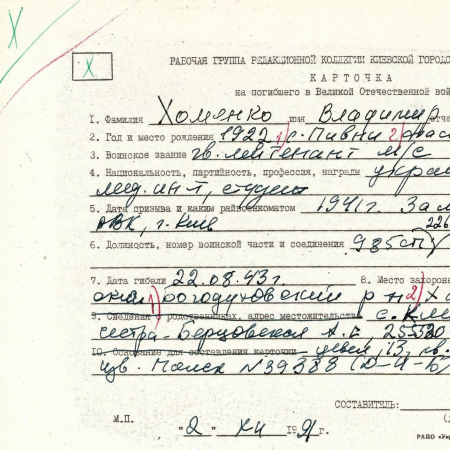 X
X
РАБОЧАЯ ГРУППА РЕДАКЦИОННОЙ КОЛЛЕГИИ КИЕВСКОЙ ГОРОДС
КАРТОЧКА
на погибшего в Великой Отечественной вой
1. Фамилия Хоменко имя Владимир отче
2. Год и место рождения 1922 1) с. Пивни 2)
3. Воинское звание гв. лейтенант м/с
4. Национальность, партийность, профессия, награды украи
мед. ин-т, студент
5. Дата призыва и каким райвоенкоматом 1941г. Зал
РВК, г. Киев 226
6. Должность, номер воинской части и соединения 985 сп
7. Дата гибели 22.08.43г. 8. Место захороне
1) Богодуховский р-н 2) Х
9. Сведения о родственниках, адрес местожительства с.
сестра - Берцовская А. 255320
10. Основание для составления карточки 13, кв.
изв. Поиск №39383 (Д-И-Б)
СОСТАВИТЕЛЬ:
М.П. "2" XII 1991г.
РАПО «Укр